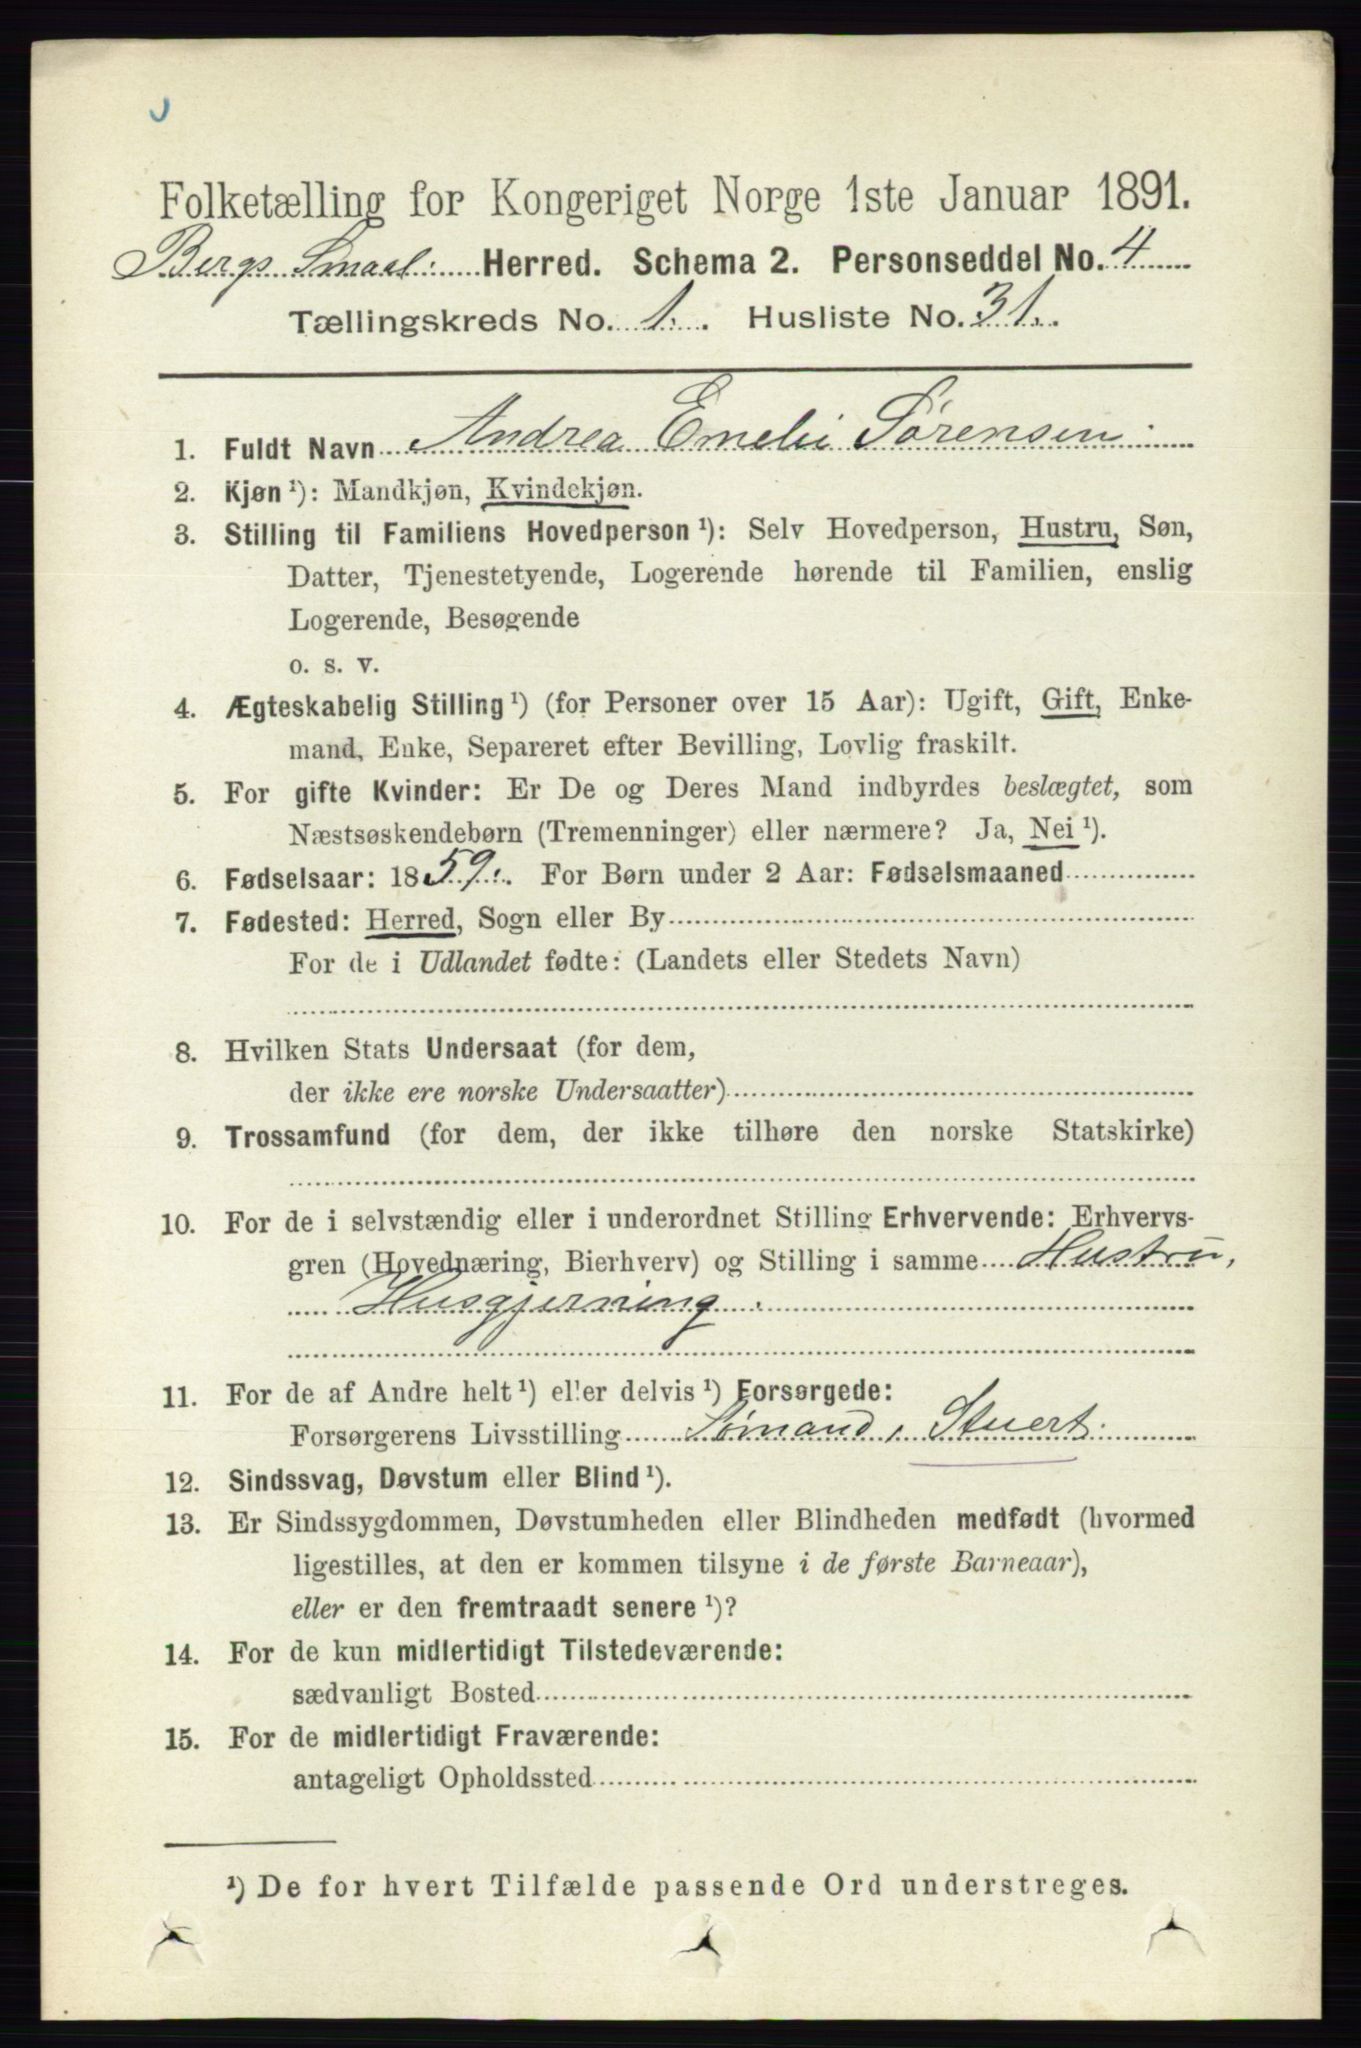 Folketælling for Kongeriget Norge 1ste Januar 1891.
Bergs Smaal: Herred. Schema 2. Personseddel No. 4
Tællingskreds No. 1. Husliste No. 31.
1. Fuldt Navn Andrea Emelie Sørensen
2. Kjøn ¹): Mandkjøn, Kvindekjøn.
3. Stilling til Familiens Hovedperson ¹): Selv Hovedperson, Hustru, Søn,
Datter, Tjenestetyende, Logerende hørende til Familien, enslig
Logerende, Besøgende
o. s. v.
4. Ægteskabelig Stilling ¹) (for Personer over 15 Aar): Ugift, Gift, Enke-
mand, Enke, Separeret efter Bevilling, Lovlig fraskilt.
5. For gifte Kvinder: Er De og Deres Mand indbyrdes beslægtet, som
Næstsøskendebørn (Tremenninger) eller nærmere? Ja, Nei ¹).
6. Fødselsaar: 1859. For Børn under 2 Aar: Fødselsmaaned
7. Fødested: Herred, Sogn eller By
For de i Udlandet fødte: (Landets eller Stedets Navn)
8. Hvilken Stats Undersaat (for dem,
der ikke ere norske Undersaatter)
9. Trossamfund (for dem, der ikke tilhøre den norske Statskirke)
10. For de i selvstændig eller i underordnet Stilling Erhvervende: Erhvervs-
gren (Hovednæring, Bierhverv) og Stilling i samme Hustru,
Husgjerning.
11. For de af Andre helt ¹) eller delvis ¹) Forsørgede:
Forsørgerens Livsstilling Sømand, Stuert.
12. Sindssvag, Døvstum eller Blind ¹).
13. Er Sindssygdommen, Døvstumheden eller Blindheden medfødt (hvormed
ligestilles, at den er kommen tilsyne i de første Barneaar),
eller er den fremtraadt senere ¹)?
14. For de kun midlertidigt Tilstedeværende:
sædvanligt Bosted
15. For de midlertidigt Fraværende:
antageligt Opholdssted
¹) De for hvert Tilfælde passende Ord understreges.